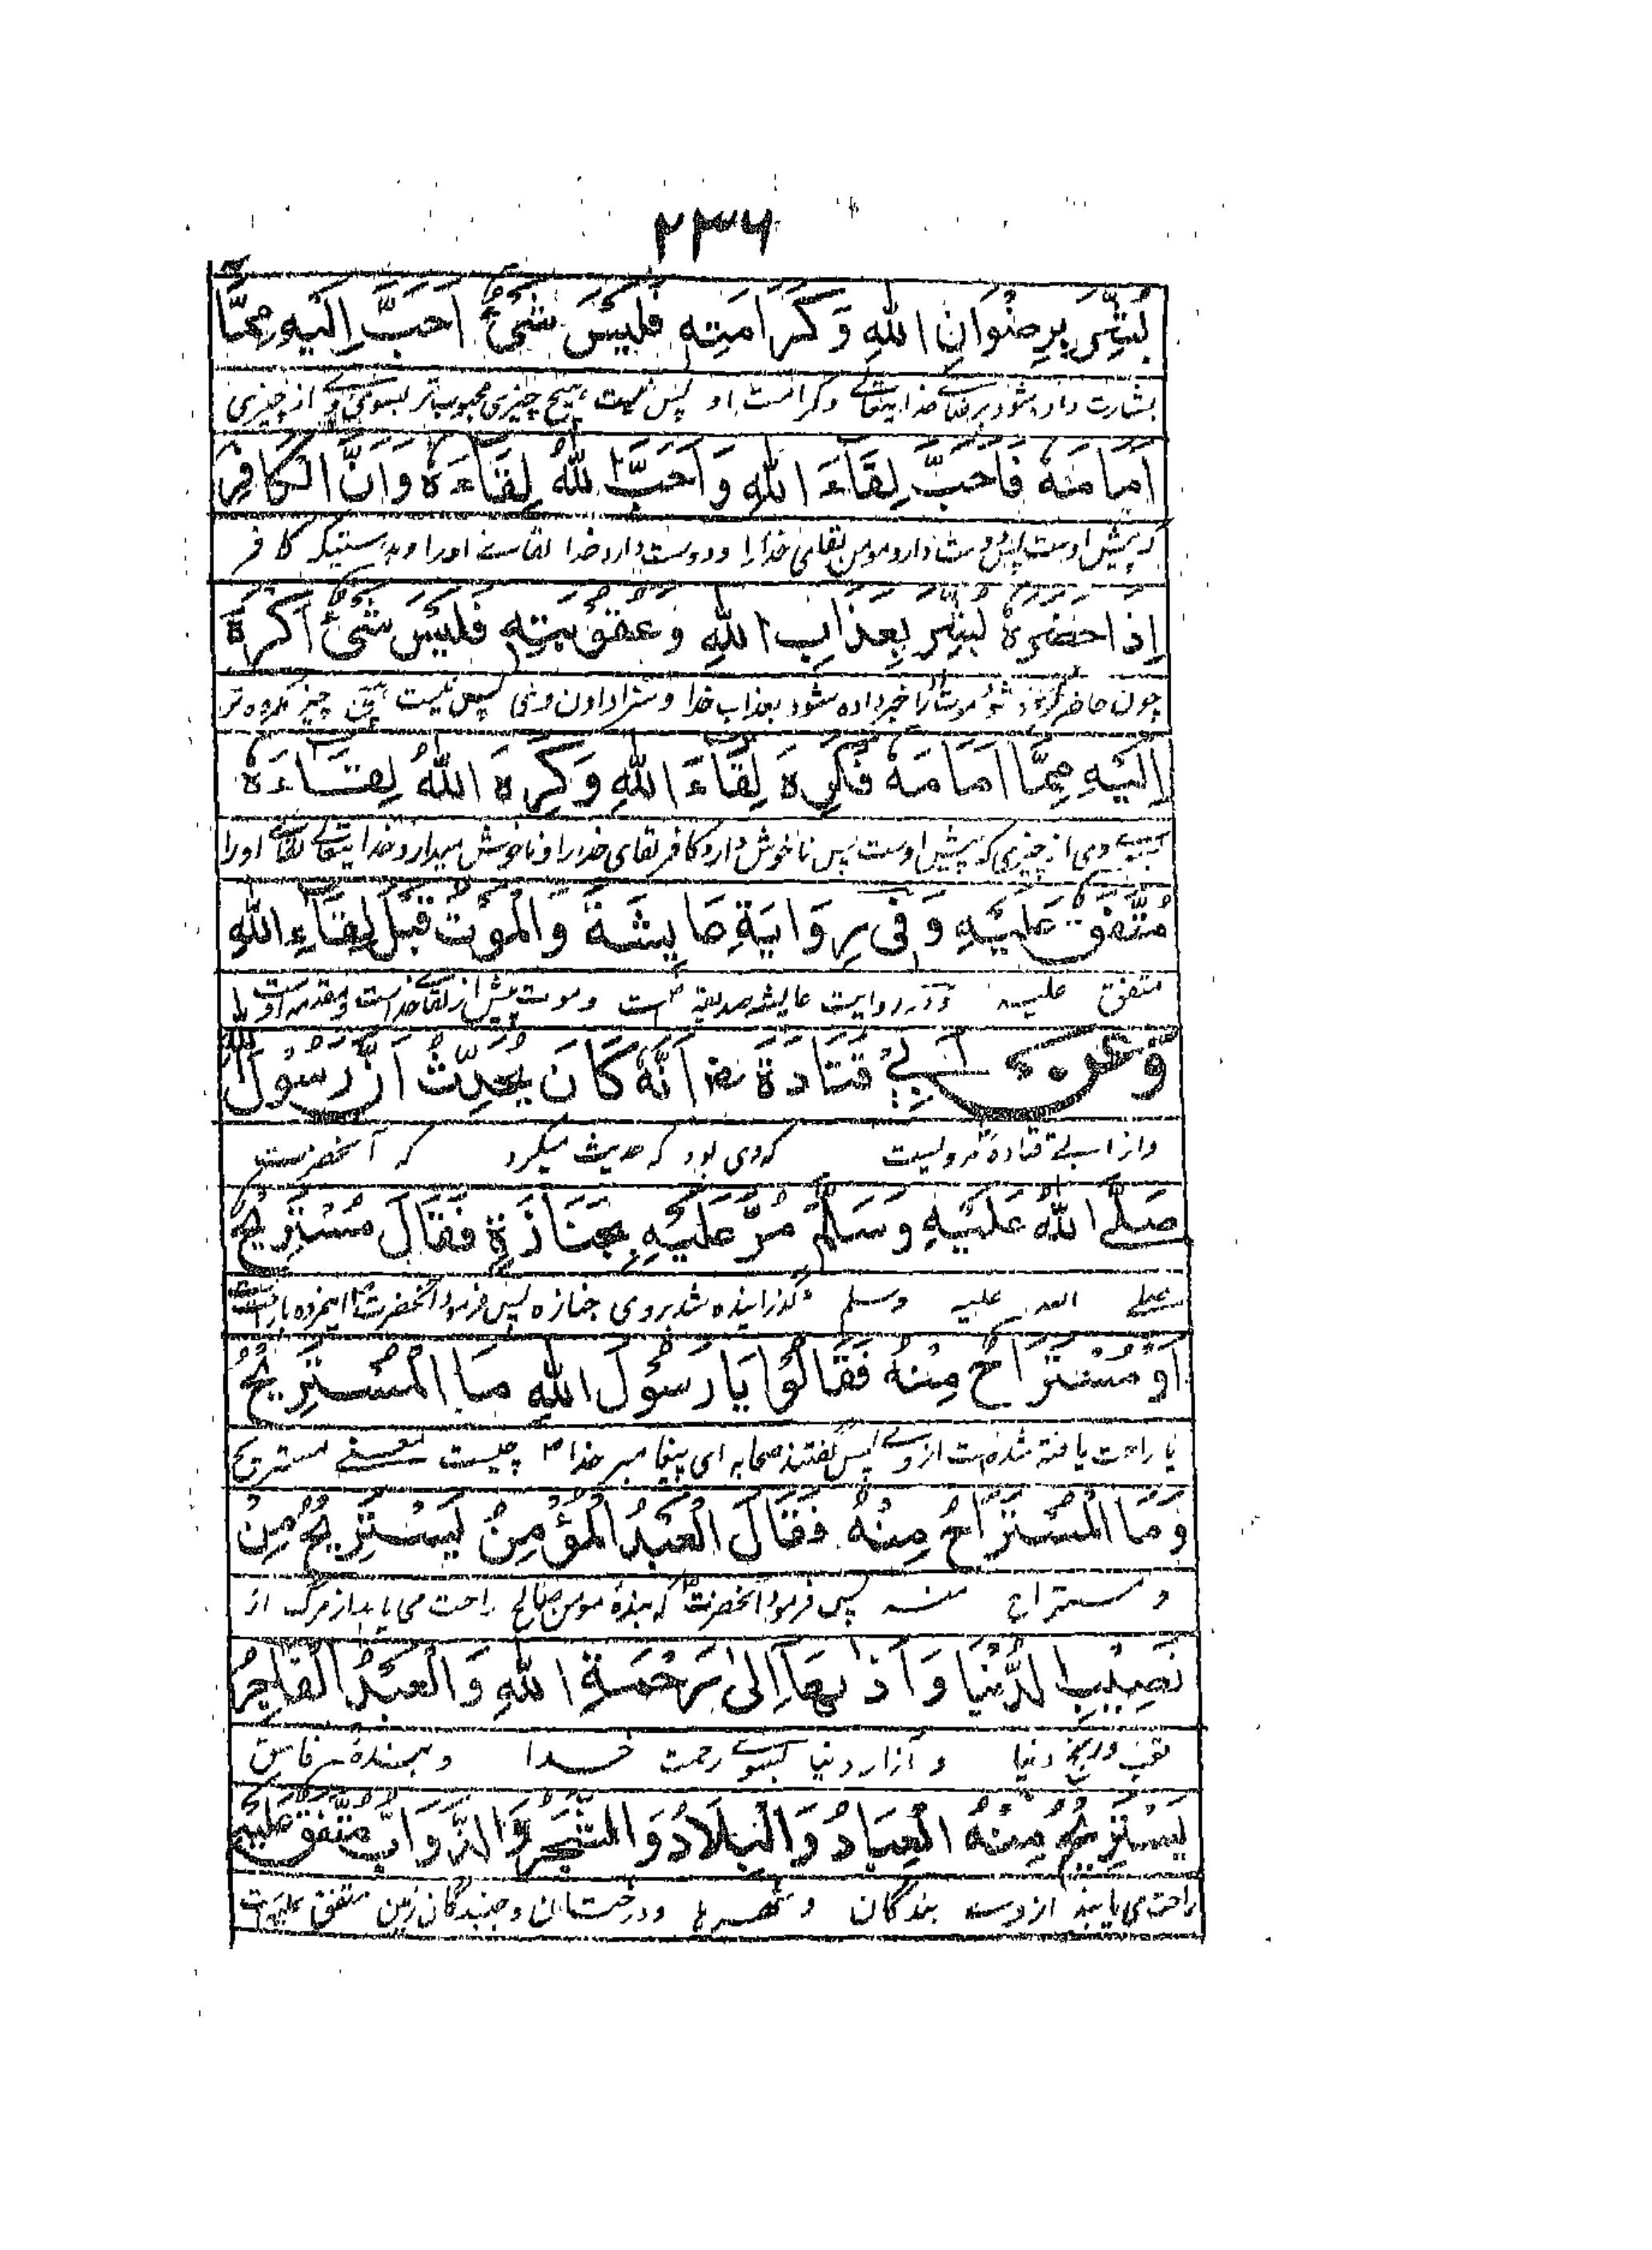 ۲۳۶
بُشِّرَ بِرِضْوَانِ اللهِ وَكَرَامَتِهِ فَلَيْسَ شَيْءٌ اَحَبَّ اِلَيْهِ مِمَّا
بشارت داده شود برضای خدایتعالے وکرامت او پس نیست هیچ چیزی محبوب تر بسوی وے از چیزی
اَمَامَهٗ فَاَحَبَّ لِقَاءَ اللهِ وَاَحَبَّ اللهُ لِقَاءَهٗ وَاِنَّ الْكَافِرَ
که پیش اوست پس دوست دارد مومن لقای خدا را ودوست دارد خدا لقاے اورا وبدرستیکه کافر
اِذَا حُضِرَهٗ بُشِّرَ بِعَذَابِ اللهِ وَعُقُوْبَتِهِ فَلَيْسَ شَيْءٌ اَكْرَهَ
چون حاضر کرده شود موت را خبر داده شود بعذاب خدا وسزا دادن وی پس نیست هیچ چیز مکروه تر
اِلَيْهِ مِمَّا اَمَامَهٗ فَكَرِهَ لِقَاءَ اللهِ وَكَرِهَ اللهُ لِقَاءَهٗ
بسوے وی از چیزی که پیش اوست پس ناخوش دارد کافر لقای خدا را وناخوش میدارد خدایتعالے لقاے اورا
مُتَّفَقٌ عَلَيْهِ وَفِيْ رِوَايَةِ عَايِشَةَ وَالْمَوْتُ قَبْلَ لِقَاءِ اللهِ
متفق علیه ودر روایت عایشه صدیقه است وموت پیش از لقاے خداست
وَعَنْ اَبِيْ قَتَادَةَ رض اَنَّهٗ كَانَ يُحَدِّثُ اَنَّ رَسُوْلَ اللهِ
واز ابے قتاده مرویست که وی بود که حدیث میکرد که آنحضرت
صَلَّى اللهُ عَلَيْهِ وَسَلَّمَ مُرَّ عَلَيْهِ بِجَنَازَةٍ فَقَالَ مُسْتَرِيْحٌ
صلے الله علیه وسلم گذرانیده شد بروی جنازه پس فرمود آنحضرت اینمرده
اَوْ مُسْتَرَاحٌ مِنْهُ فَقَالُوْا يَا رَسُوْلَ اللهِ مَا الْمُسْتَرِيْحُ
یا راحت یافته شده است از وے پس گفتند صحابه ای پیغامبر خدا چیست معنے مستریح
وَمَا الْمُسْتَرَاحُ مِنْهُ فَقَالَ الْعَبْدُ الْمُؤْمِنُ يَسْتَرِيْحُ مِنْ
ومستراح منه پس فرمود آنحضرت که بندهٔ مومن صالح راحت می یابد از مرگ از
نَصِيْبِ الدُّنْيَا وَاَذٰىهَا اِلٰى رَحْمَةِ اللهِ وَالْعَبْدُ الْفَاجِرُ
تعب ورنج دنیا و آزار دنیا بسوے رحمت خدا وبندهٔ فاسق
يَسْتَرِيْحُ مِنْهُ الْعِبَادُ وَالْبِلَادُ وَالشَّجَرُ وَالدَّوَابُّ مُتَّفَقٌ عَلَيْهِ
راحت می یابند از وے بندگان وشهرها ودرختان وجنبندگان زمین متفق علیه است